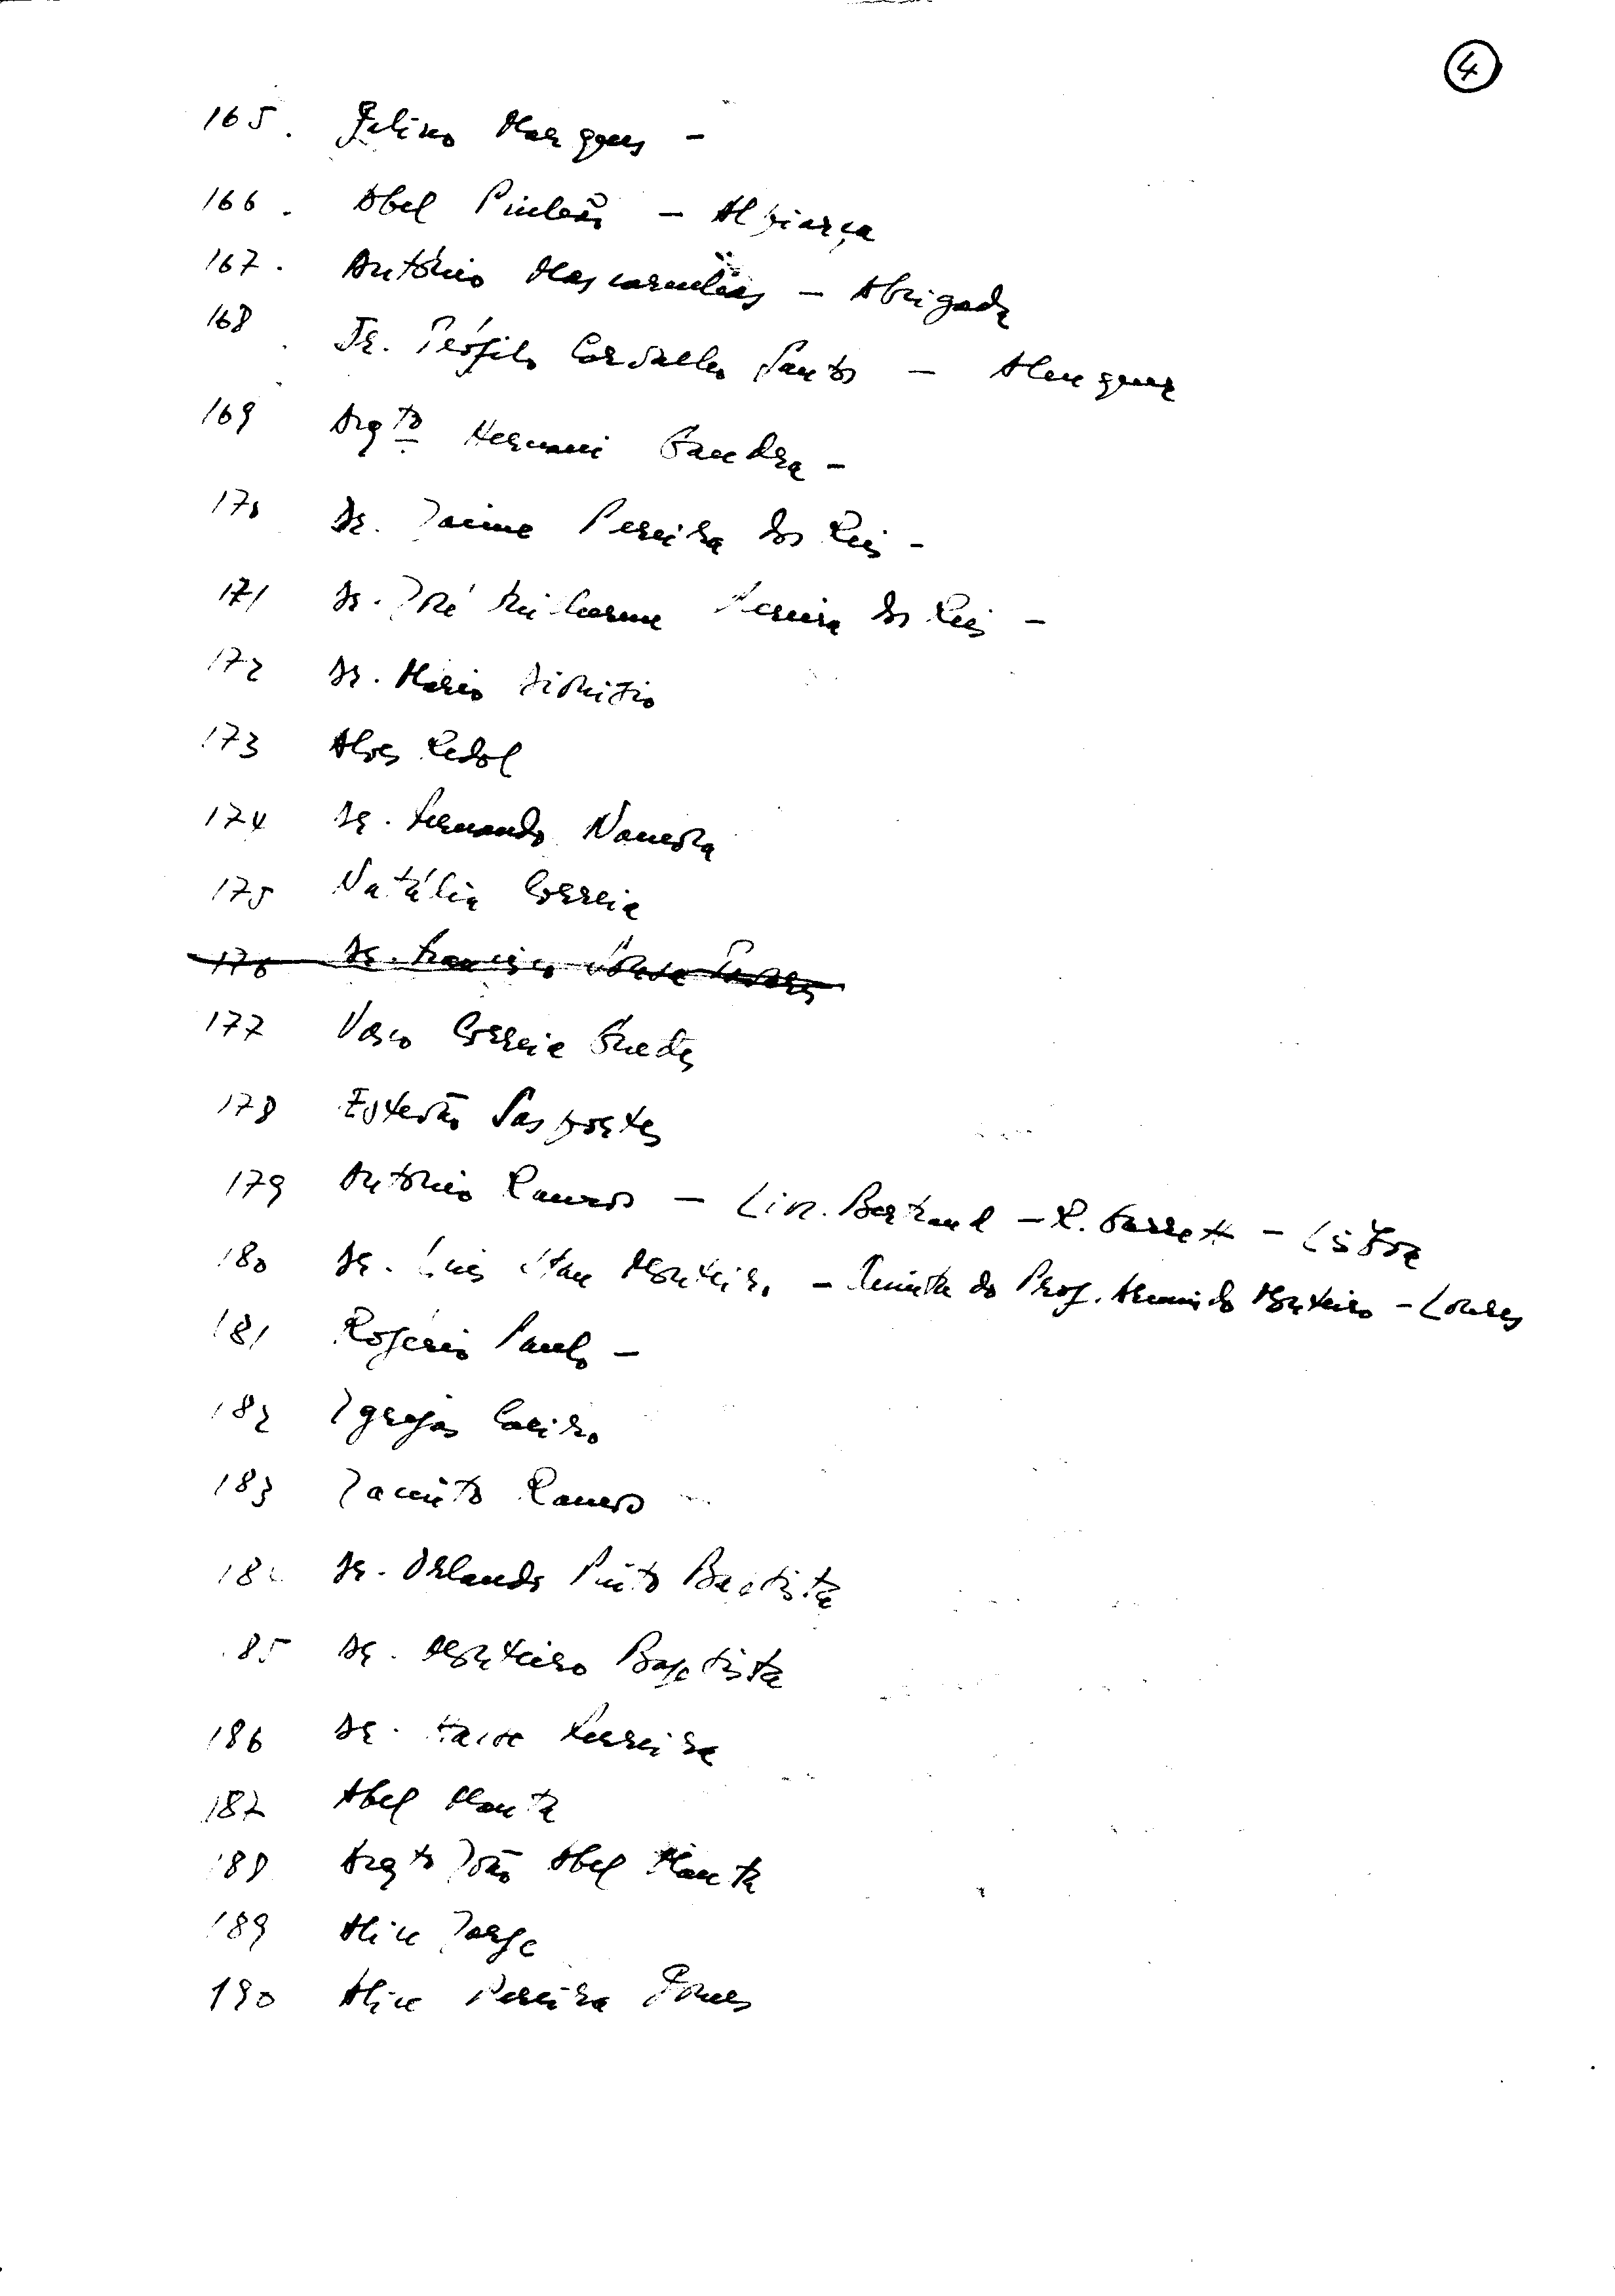 4
165. Felino Marques -
166. Abel Pinhão - Alpiarça
167. António Mascarenhas - Abrigada
168. Dr. Teófilo Carvalho Santos - Alenquer
169 Arqto Hernani Gandra -
170 Dr. Jaime Pereira dos Reis -
171 Dr. José Guilherme Pereira dos Reis -
172 Dr. Mário Dionísio
173 Alves Redol
174 Dr. Fernando Namora
175 Natália Correia
176 Dr. Francisco Sousa Tavares
177 Vasco Correia Guedes
178 Estevão Sasportes
179 António Ramos - Liv. Bertrand - R. Garrett - Lisboa
180 Dr. Luis Stau Monteiro - Quinta do Prof. Armindo Monteiro - Loures
181 Rogério Paulo -
182 Igrejas Caeiro
183 Jacinto Ramos
18 Dr. Orlando Pinto Baptista
85 Dr. Monteiro Baptista
186 Dr. Ferreira
187 Abel Manta
188 Arqto João Abel Manta
189 Alice Jorge
190 Alice Pereira Gomes